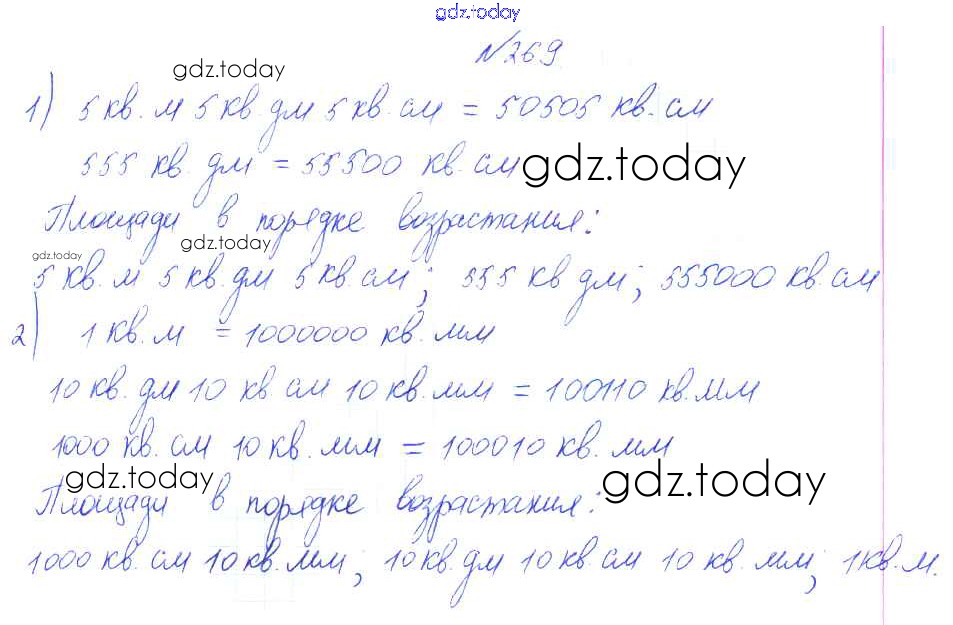 gdz.today
№269
gdz.today
1) 5 кв. м 5 кв. дм 5 кв. см = 50505 кв. см
555 кв. дм = 55500 кв. см
gdz.today
Площади в порядке возрастания:
gdz.today
gdz.today
5 кв. м 5 кв. дм 5 кв. см; 555 кв дм; 555000 кв. см
2) 1 кв. м = 1000000 кв. мм
10 кв. дм 10 кв см 10 кв. мм = 100110 кв. мм
1000 кв. см 10 кв. мм = 100010 кв. мм
gdz.today
gdz.today
Площади в порядке возрастания:
1000 кв. см 10 кв. мм; 10 кв. дм 10 кв см 10 кв. мм; 1 кв. м.